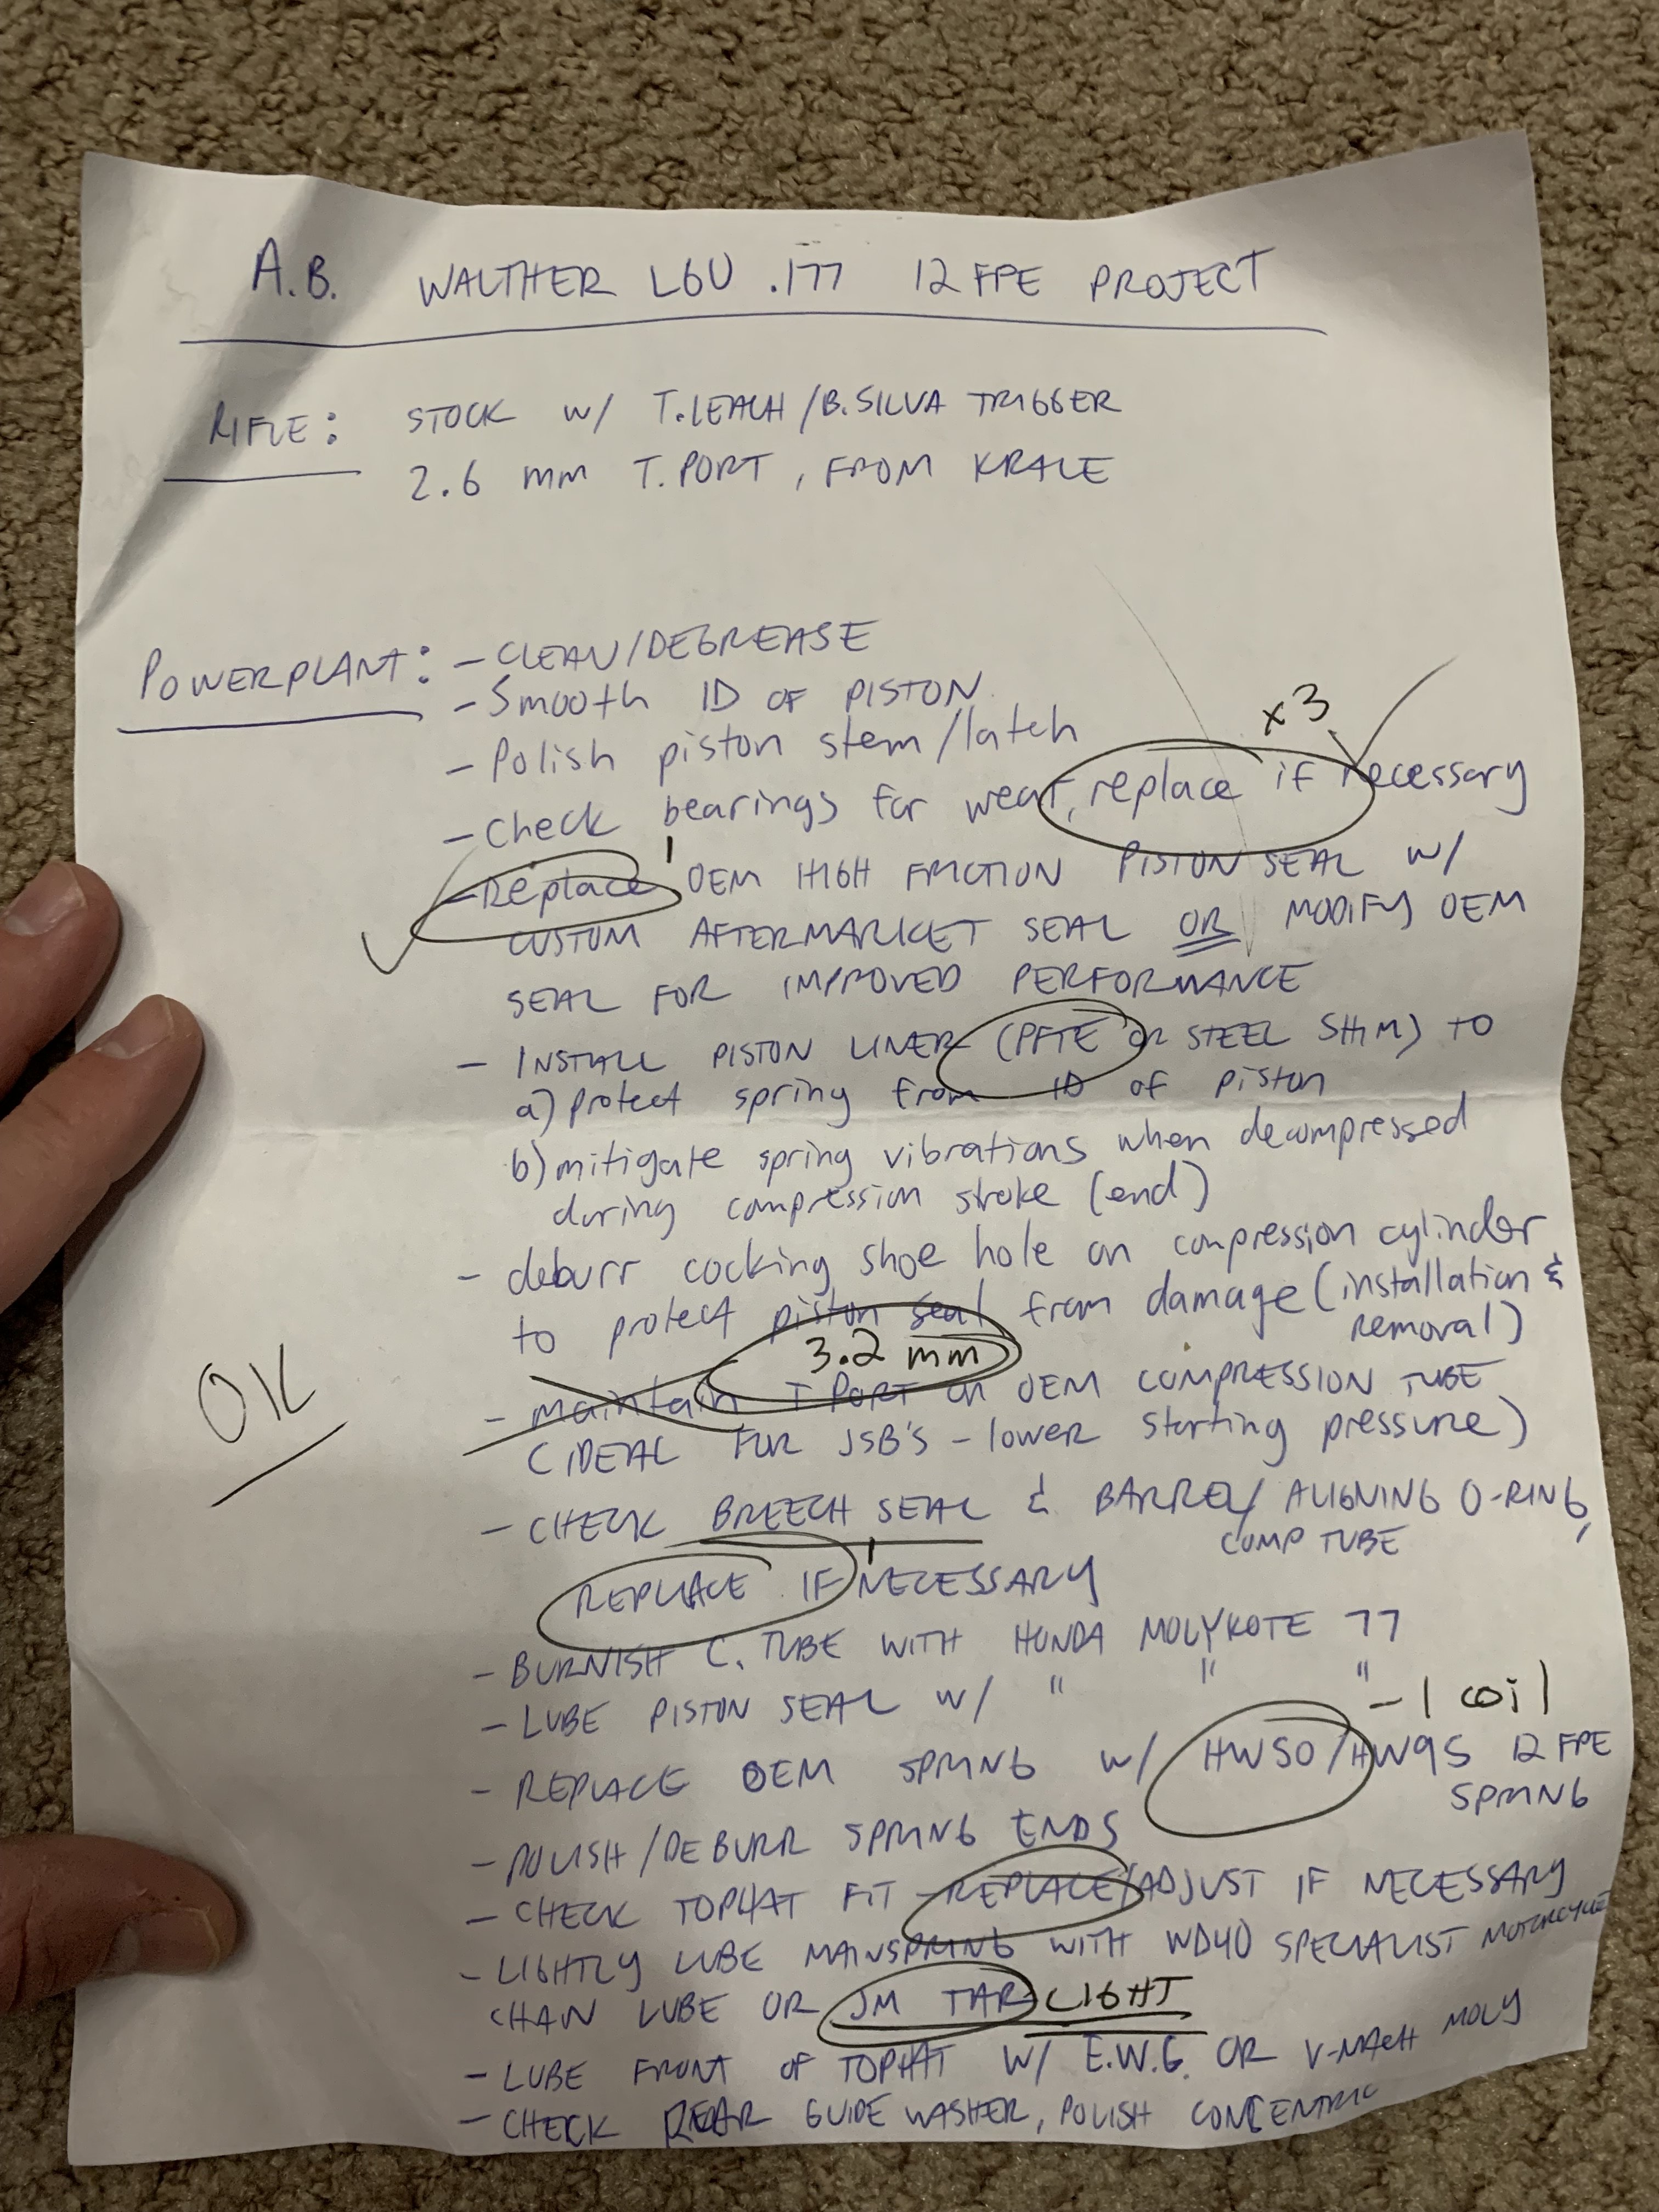 A.B. WALTHER LGU .177 12 FPE PROJECT
RIFLE: STOCK W/ T.LEACH/B.SILVA TRIGGER
2.6 mm T.PORT, FROM KRALE
POWERPLANT: - CLEAN/DEGREASE
- Smooth ID OF PISTON
- Polish piston stem/latch
x3
- Check bearings for wear, replace if necessary
- Replace OEM HIGH FRICTION PISTON SEAL W/
CUSTOM AFTERMARKET SEAL OR MODIFY OEM
SEAL FOR IMPROVED PERFORMANCE
- INSTALL PISTON LINER (PFTE OR STEEL SHIM) TO
a) protect spring from ID of piston
b) mitigate spring vibrations when decompressed
during compression stroke (end)
- deburr cocking shoe hole on compression cylinder
to protect piston seal from damage (installation &
removal)
OK
3.2 mm
- maintain T PORT on OEM COMPRESSION TUBE
(IDEAL FOR JSB'S - lower starting pressure)
- CHECK BREECH SEAL & BARREL/ALIGNING O-RING,
COMP TUBE
REPLACE IF NECESSARY
- BURNISH C. TUBE WITH HONDA MOLYKOTE 77
- LUBE PISTON SEAL W/ " " "
-1 coil
- REPLACE OEM SPRING W/ HW50/HW95 12 FPE
SPRING
- POLISH/DEBURR SPRING ENDS
- CHECK TOPHAT FIT - REPLACE/ADJUST IF NECESSARY
- LIGHTLY LUBE MAINSPRING WITH WD40 SPECIALIST MOTORCYCLE
CHAIN LUBE OR JM TAR LIGHT
- LUBE FRONT OF TOPHAT W/ E.W.G. OR V-MACH MOLY
- CHECK REAR GUIDE WASHER, POLISH CONCENTRIC